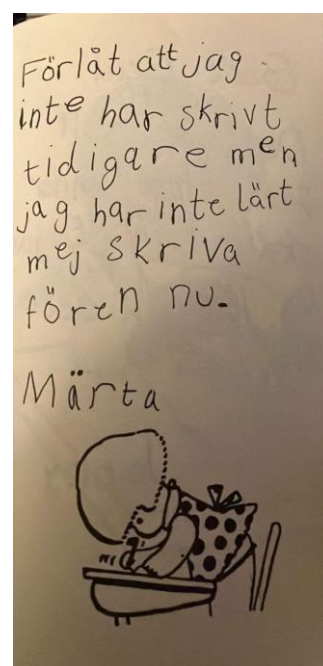 Förlåt att jag
inte har skrivt
tidigare men
jag har inte lärt
mej skriva
fören nu.
Märta